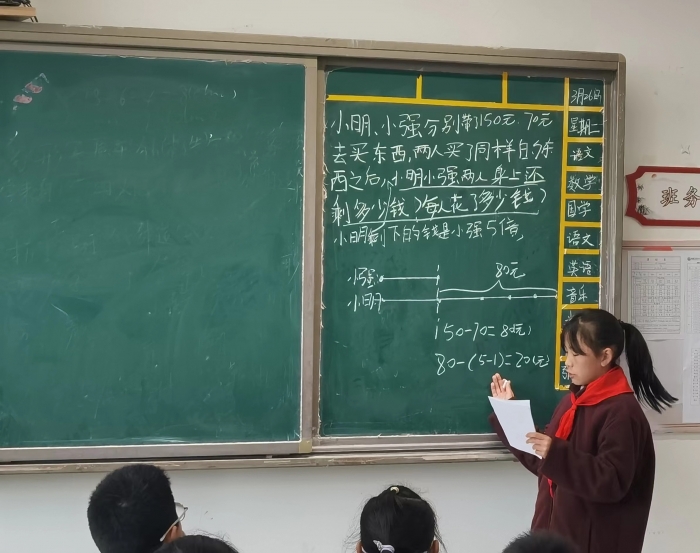 小明、小强分别带了150元、70元
去买东西,两人买了同样的东
西之后,小明小强两人身上还
剩多少钱?每人花了多少钱?
小明剩下的钱是小强5倍,
80元
小强
小明
150-70=80(元)
80-(5-1)=20(元)
3月26日
星期二
语文
数学
国学
语文
英语
音乐
班务